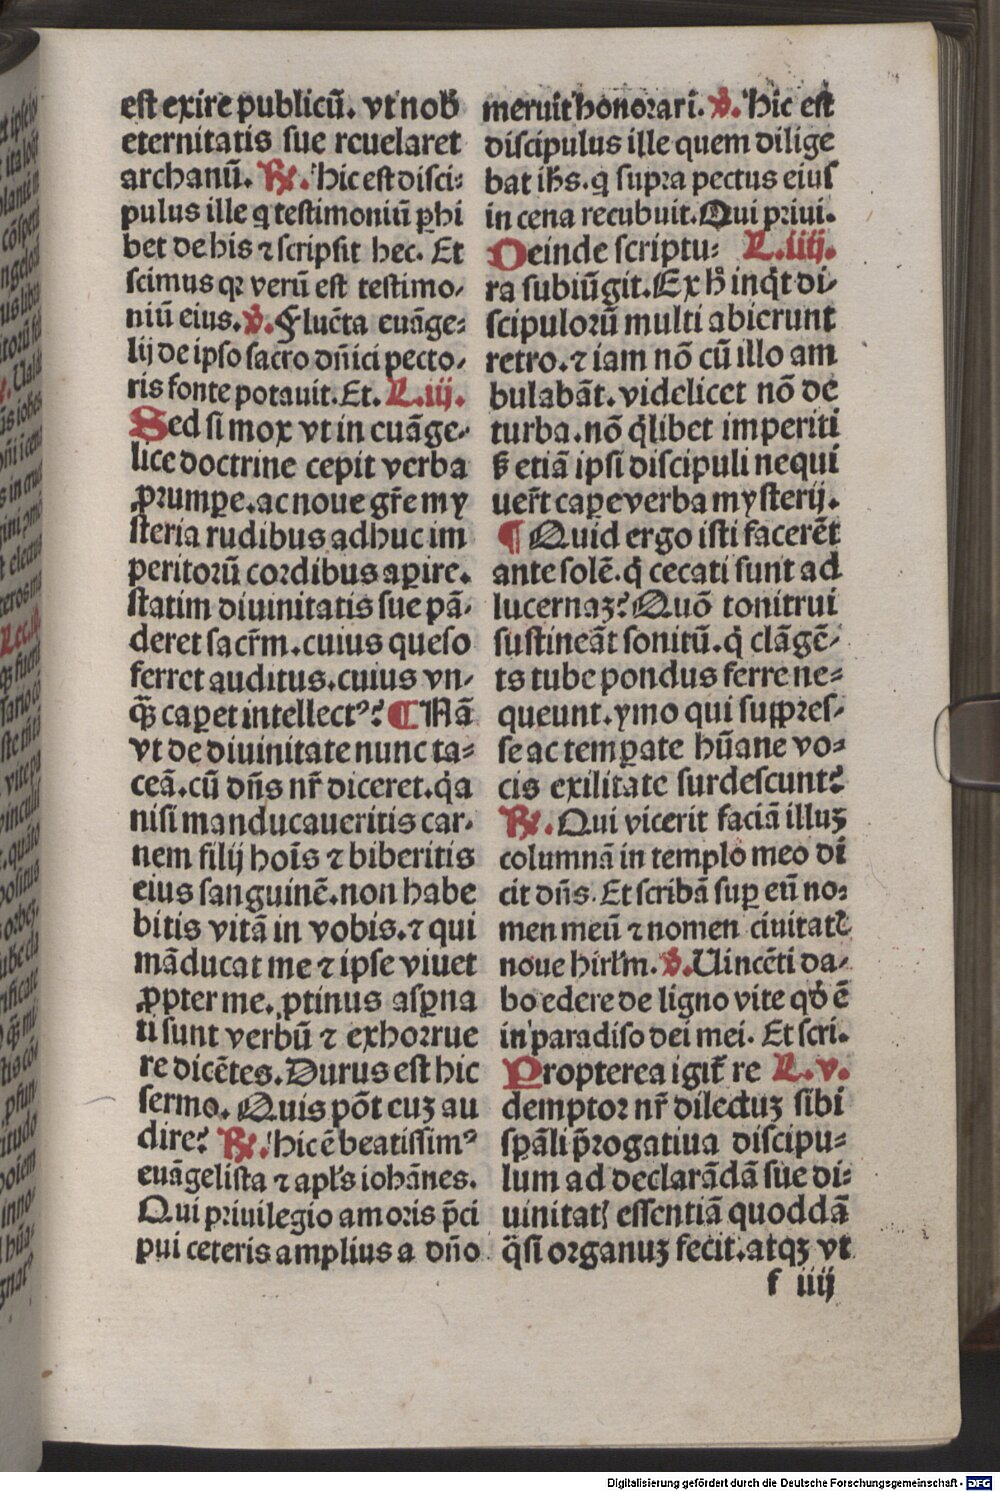 est exire publicū. vt nob̄
eternitatis sue rcuelaret
archanū. ℟. Hic est disci⸗
pulus ille q̇ testimoniū ꝑhi
bet de his ⁊ scripsit hec. Et
scimus qꝛ verū est testimo⸗
niū eius. ℣. Fluēta euāge⸗
lij de ipso sacro dn̄ici pecto⸗
ris fonte potauit. Et. L. iij.
Sed si mox vt in euāge⸗
lice doctrine cepit verba
ꝓrumꝑe. ac noue gr̄e my
steria rudibus adhuc im
peritorū cordibus aꝑire.
statim diuinitatis sue pā⸗
deret sacr̄m. cuius queso
ferret auditus. cuius vn⸗
q̄ꝫ caꝑet intellectꝰ? ¶ Nā
vt de diuinitate nunc ta⸗
ceā. cū dn̄s nr̄ diceret. q̇a
nisi manducaueritis car⸗
nem filij hoīs ⁊ biberitis
eius sanguinē. non habe
bitis vitā in vobis. ⁊ qui
māducat me ⁊ ipse viuet
ꝓpter me. ꝓtinus asꝑna
ti sunt verbū ⁊ exhorrue
re dicētes. Durus est hic
sermo. Quis pōt cuꝫ au
dire? ℟. Hic ē beatissimꝰ
euāgelista ⁊ apl̄s iohānes.
Qui priuilegio amoris p̄ci
pui ceteris amplius a dn̄o
meruit honorari. ℣. Hic est
discipulus ille quem dilige
bat ih̄s. q̇ supra pectus eius
in cena recubuit. Qui priui.
Deinde scriptu⸗ L. iiij.
ra subiūgit. Ex h̄ inq̇t di⸗
scipulorū multi abierunt
retro. ⁊ iam nō cū illo am
bulabāt. videlicet nō de
turba. nō q̇libet imperiti
sꝫ etiā ipsi discipuli nequi
uer̄t caꝑe verba mysterij.
¶ Quid ergo isti facerēt
ante solē. q̇ cecati sunt ad
lucernaꝫ? Quō tonitrui
sustineāt sonitū. q̇ clāgē⸗
ts tube pondus ferre ne⸗
queunt. ymo qui suppres⸗
se ac temꝑate hūane vo⸗
cis exilitate surdescunt?
℟. Qui vicerit faciā illuꝫ
columnā in templo meo di
cit dn̄s. Et scribā suꝑ eū no⸗
men meū ⁊ nomen ciuitatꝭ
noue hirl̄m. ℣. Uincēti da⸗
bo edere de ligno vite qd̄ ē
in paradiso dei mei. Et scri.
Propterea igit̄ re L. v.
demptor nr̄ dilectuꝫ sibi
sꝑāli p̄rogatiua discipu⸗
lum ad declarādā sue di⸗
uinitatꝭ essentiā quoddā
q̄si organuꝫ fecit. atqꝫ vt
f iiij
Digitalisierung gefördert durch die Deutsche Forschungsgemeinschaft - DFG